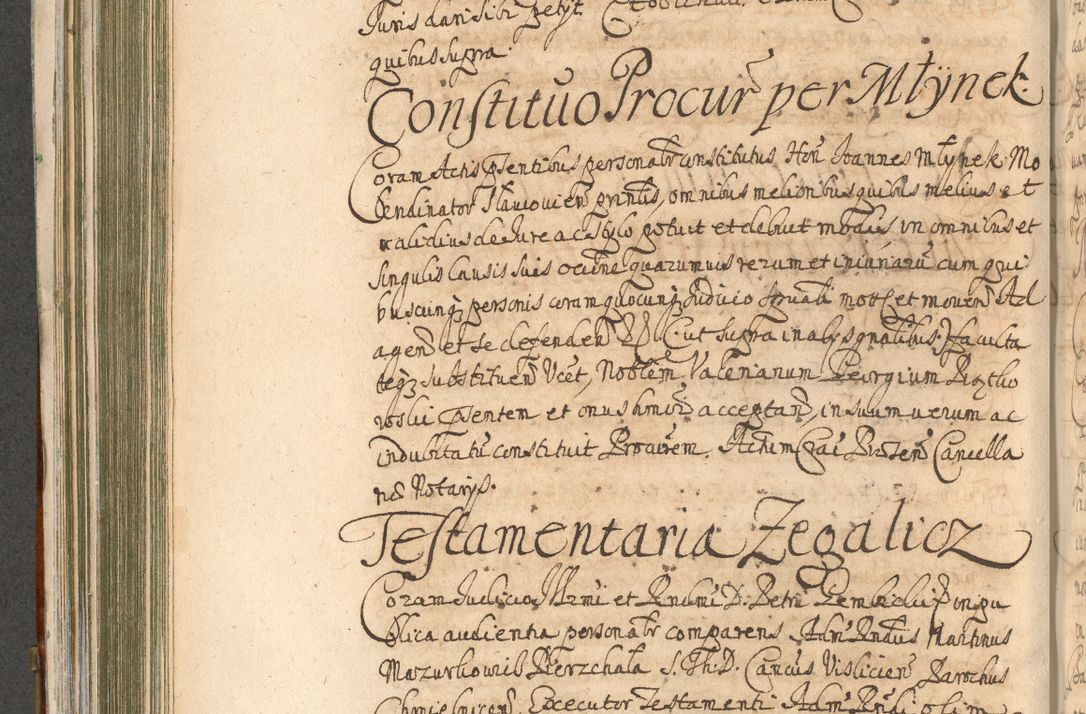 Juris dari sibi petyt.
quibus supra.
Constituo Procur̃ per Młÿnek.
Coram Actis p̃sentibus personalr̃ constitutus Hon̄ Joannes Młynek Mo
lendinator Slavovien̄ prin̄lis, omnibus melioribus quibus melius et
validius de Jure ac stylo potuit et debuit modis in omnibus et
singulis Causis suis occne quarumvis rerum et iniuriarū cum qui
buscunq; personis coram quocunq; Judicio spuali mottis et moven̄ Ad
agen̄ et se defenden̄ ut supra in alys gnalibus. Faculta
teq; substituen̄ Vcēt, Nobilem Valerianum Georgium
p̃sentem et onus hmōi acceptan̄, in suum verum ac
indubitatū constituit Procurem. Actum Crac̄ Præsen̄ Cancella
riæ Notarys.
Testamentaria Zegalicz
Coram Judicio Illrmi et Rndmi D. Petri Gembicki Epi in pu
blica audientia personalr̃ comparens Adm̄ Rndus Martinus
Mazurkowic Pierzchala S. Th. D. Can̄cus Vislicien̄ Parochus
Chmielnicen̄ Executor Testamenti Adm̄ Rndi olim